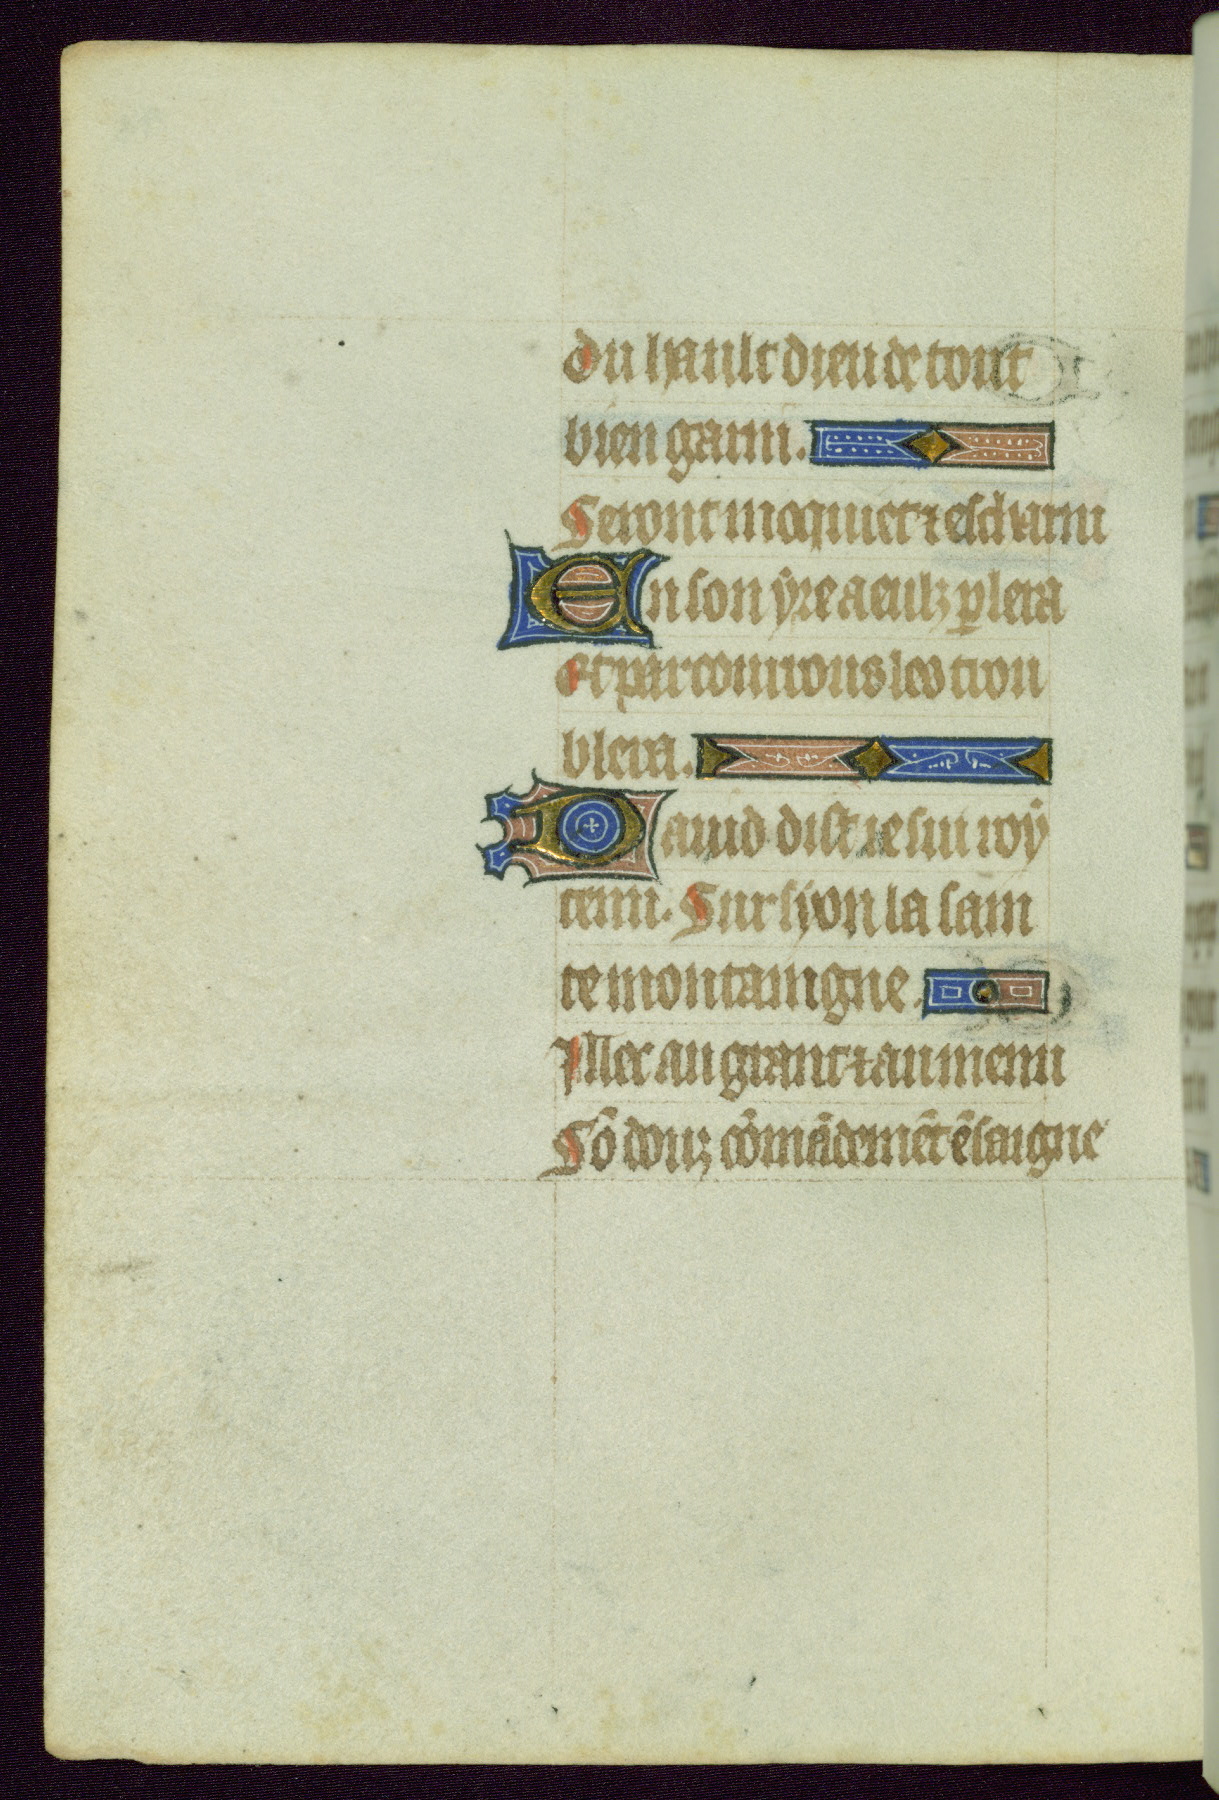 du hault dieu de tout
bien garni.
Seront moquiet ⁊ escharni
En son ÿre a eulz ꝑlera
Et par courrous les trou
blera.
Dauid dist ie sui roÿ
tenu. Sur syon la sain
te montaingne.
Mer au grant ⁊ au menu
Sō douz cōmādemēt ēsaigne